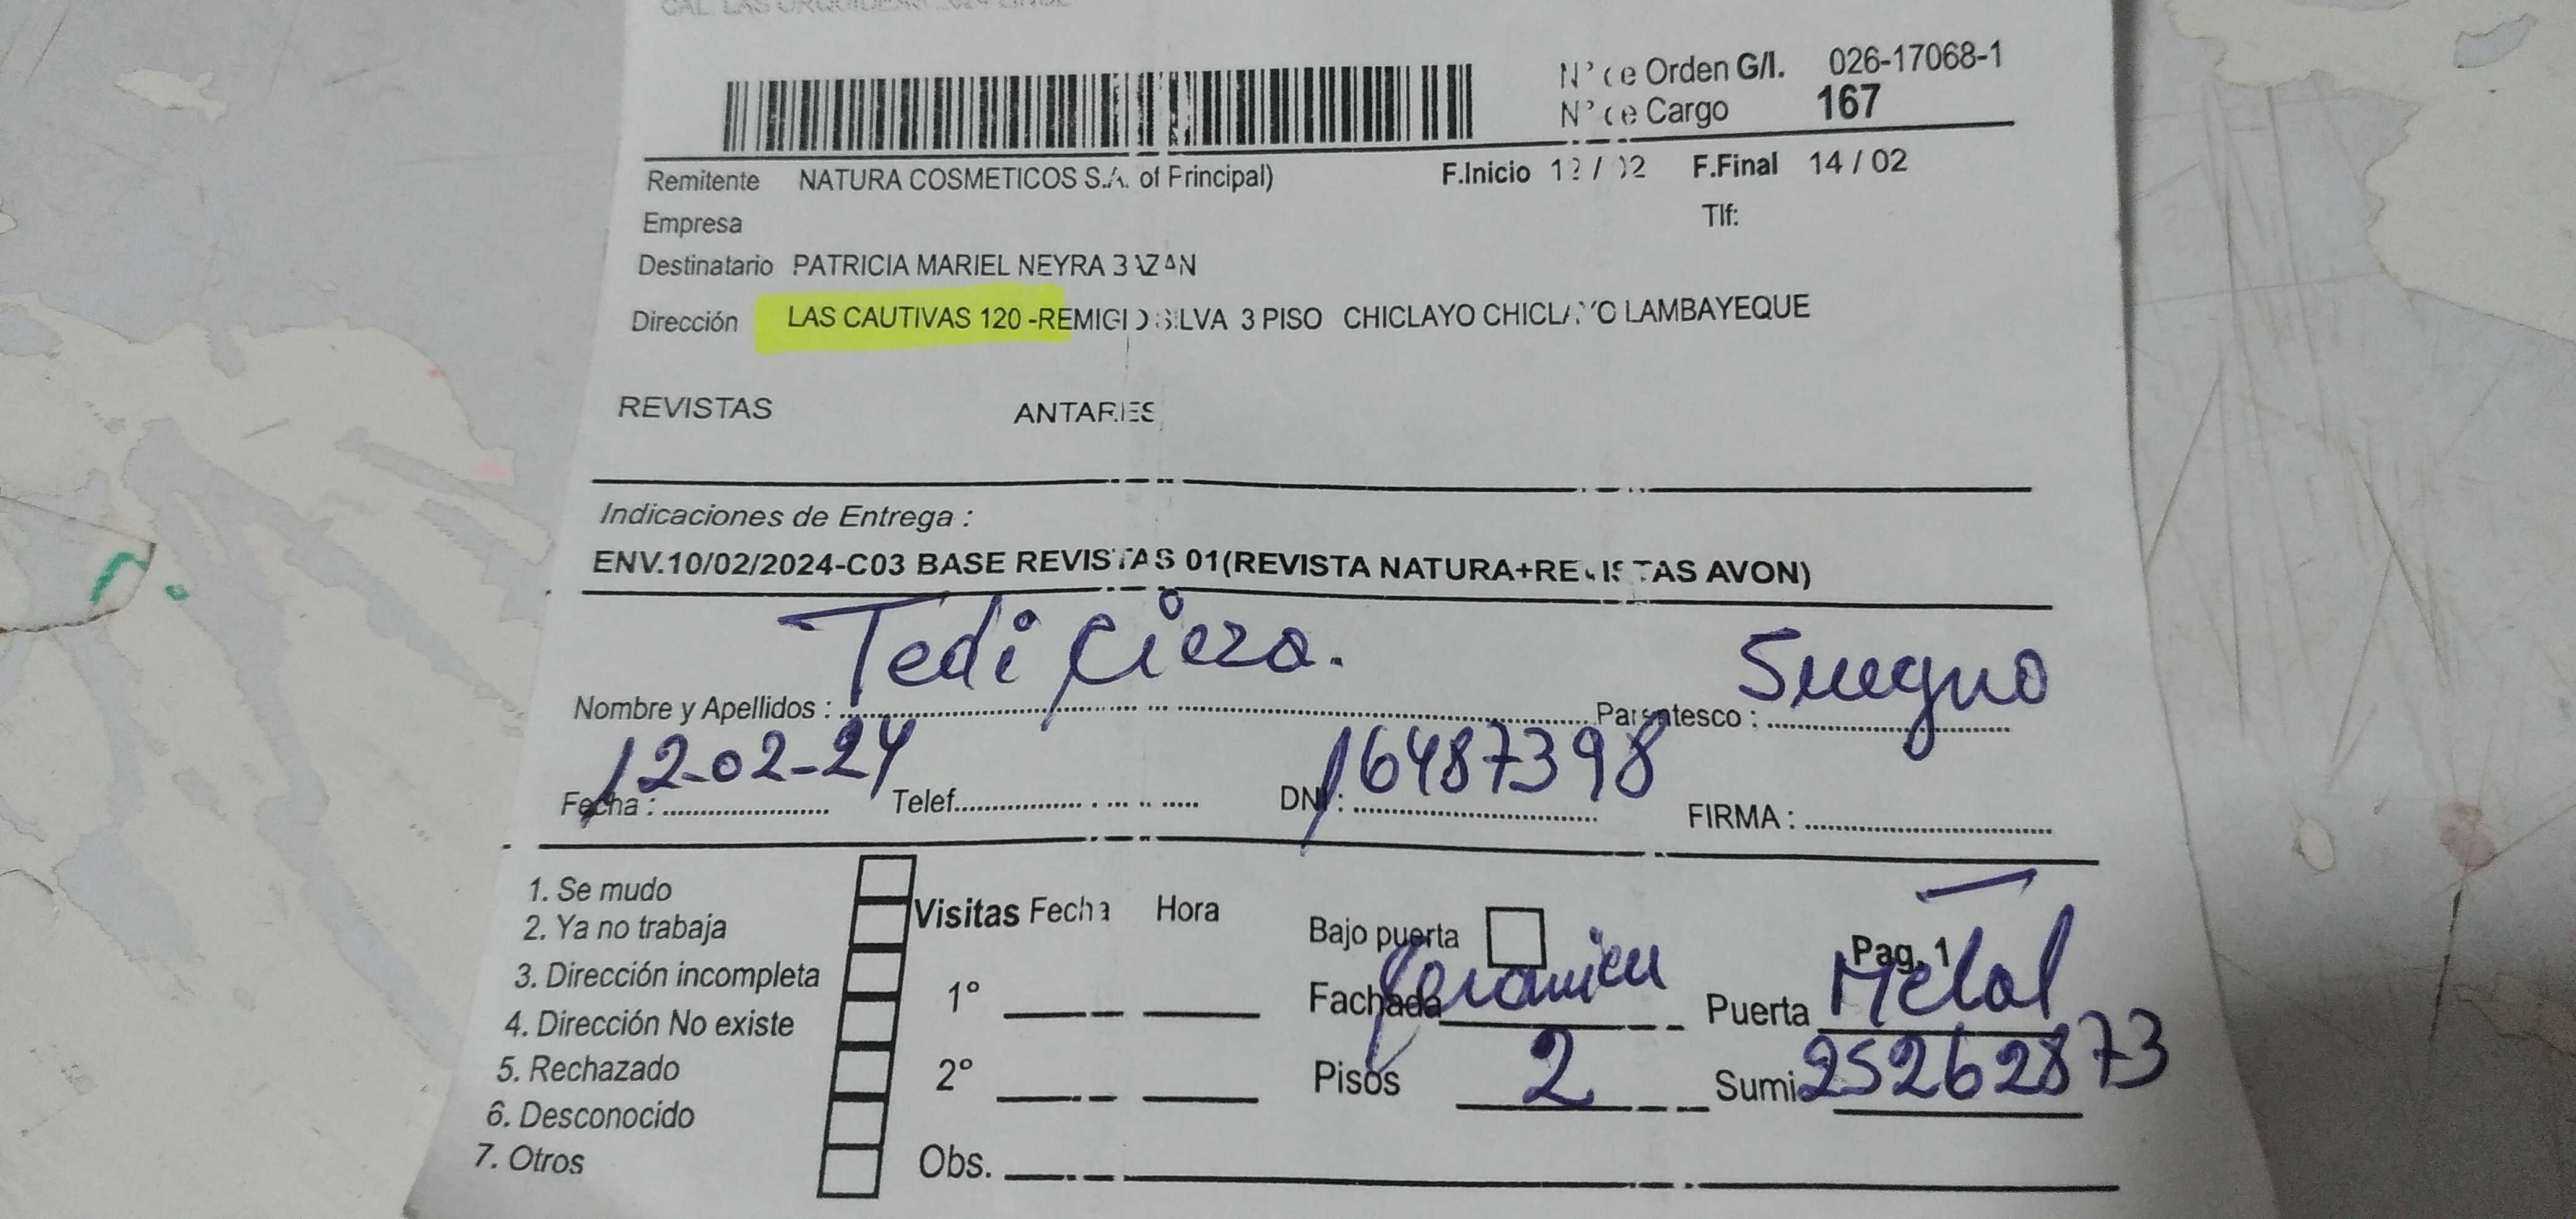 CAL. LAS ORQUIDEAS 2624 LINCE
N° de Orden G/I. 026-17068-1
N° de Cargo 167
Remitente NATURA COSMETICOS S.A. of Principal) F.Inicio 12 / 02 F.Final 14 / 02
Empresa Tlf:
Destinatario PATRICIA MARIEL NEYRA BAZAN
Dirección LAS CAUTIVAS 120 -REMIGIO SILVA 3 PISO CHICLAYO CHICLAYO LAMBAYEQUE
REVISTAS ANTARES
Indicaciones de Entrega :
ENV.10/02/2024-C03 BASE REVISTAS 01(REVISTA NATURA+REVISTAS AVON)
Nombre y Apellidos : Tedi Cieza. Parentesco : Suegno
Fecha : 12-02-24 Telef. DNI : 16487398 FIRMA :
1. Se mudo
2. Ya no trabaja
3. Dirección incompleta
4. Dirección No existe
5. Rechazado
6. Desconocido
7. Otros
Visitas Fecha Hora
1°
2°
Obs.
Bajo puerta Pag. 1
Fachada Ceramica Puerta Metal
Pisos 2 Sumi 25262873